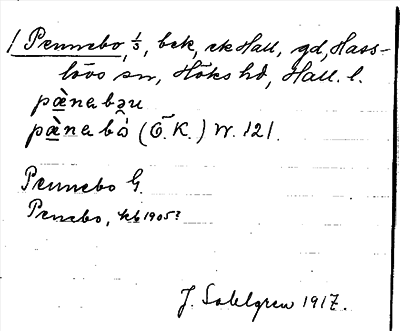 1 Pennebo, 1/3, bck, ckHall, gd, Hass-
lövs sn, Höks hd, Hall. l.
pànabəu
pànabå̂ (Ö.K.) W. 121.
Pennebo G.
Penebo, kb 1905?
J. Sahlgren 1917.